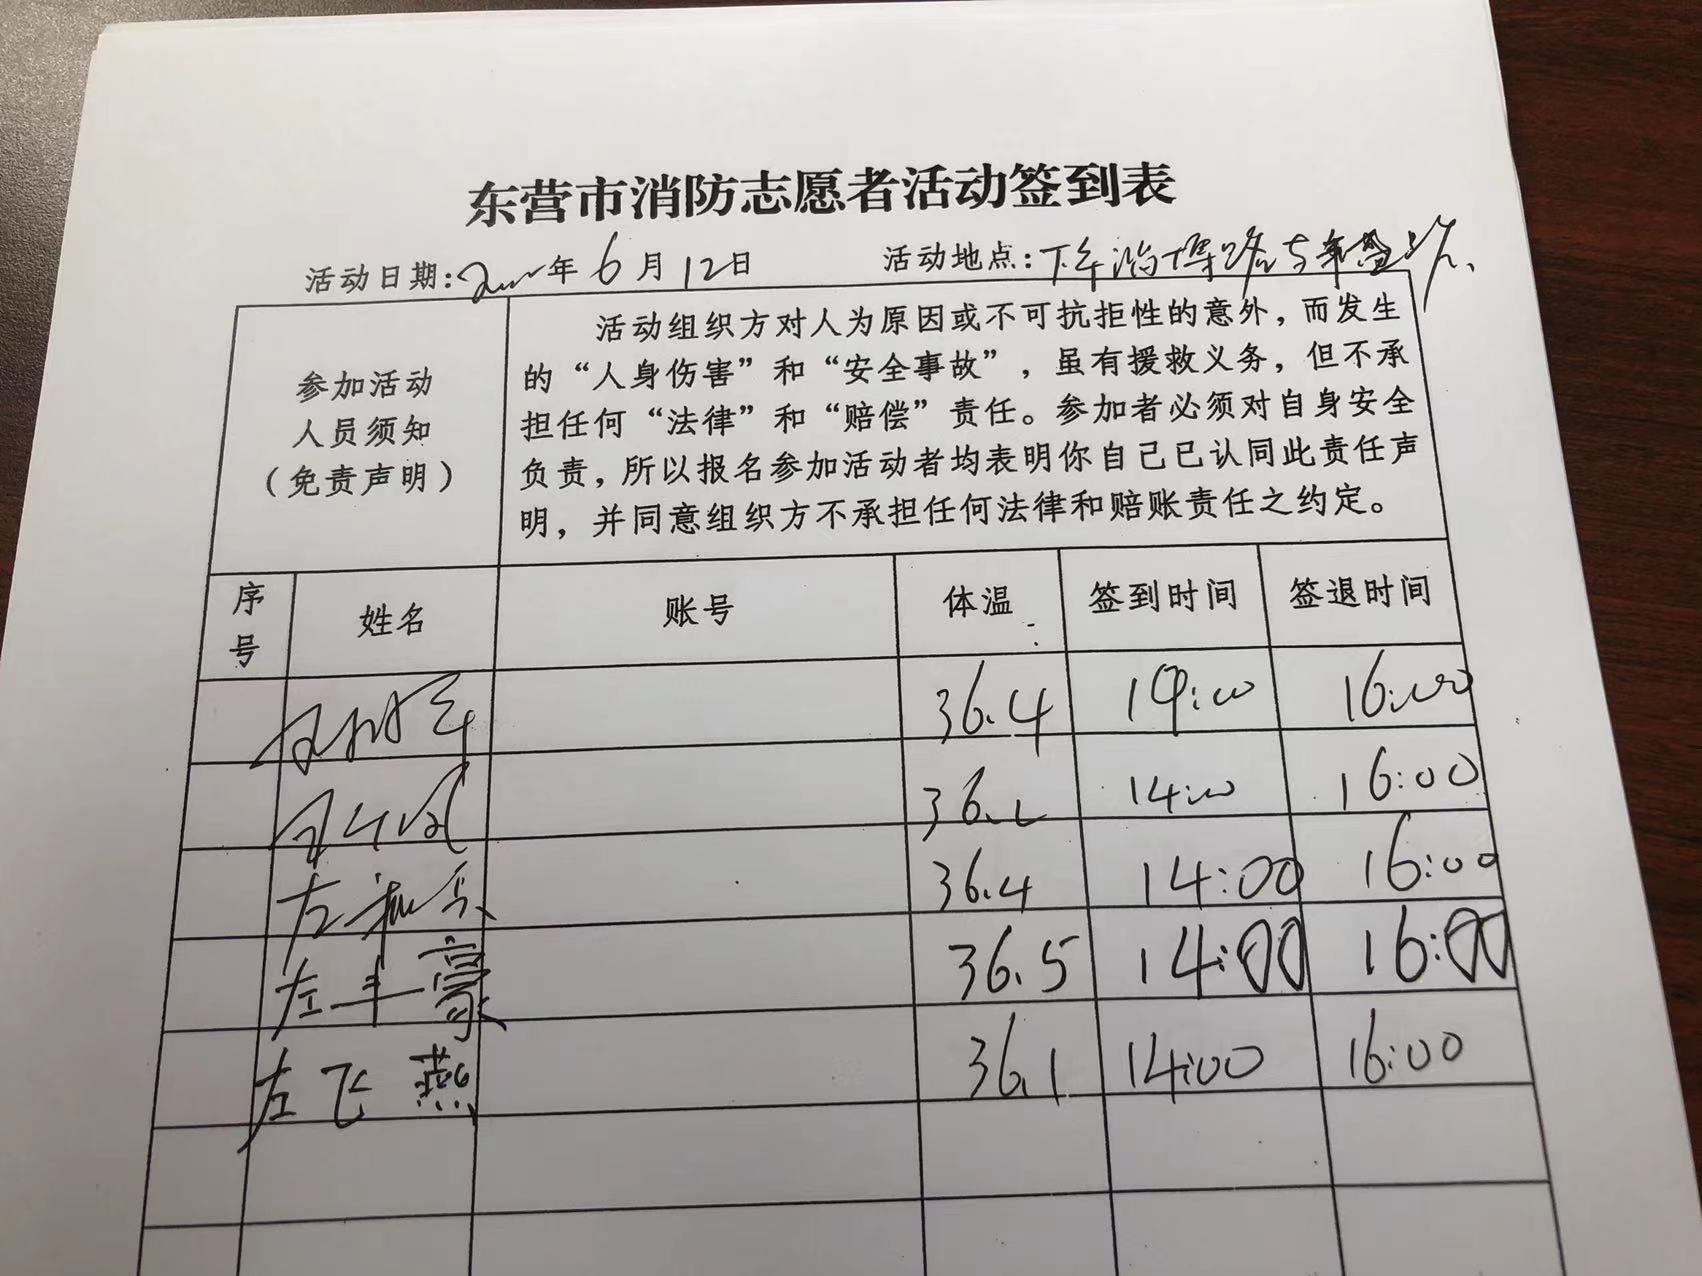 东营市消防志愿者活动签到表
活动日期: 年6月12日 活动地点:
参加活动
人员须知
(免责声明)
活动组织方对人为原因或不可抗拒性的意外，而发生
的“人身伤害”和“安全事故”，虽有援救义务，但不承
担任何“法律”和“赔偿”责任。参加者必须对自身安全
负责，所以报名参加活动者均表明你自己已认同此责任声
明，并同意组织方不承担任何法律和赔账责任之约定。
序号 姓名 账号 体温 签到时间 签退时间
36.4 14:00 16:00
14:00 16:00
36.4 14:00 16:00
左丰豪 36.5 14:00 16:00
左飞燕 36.1 14:00 16:00